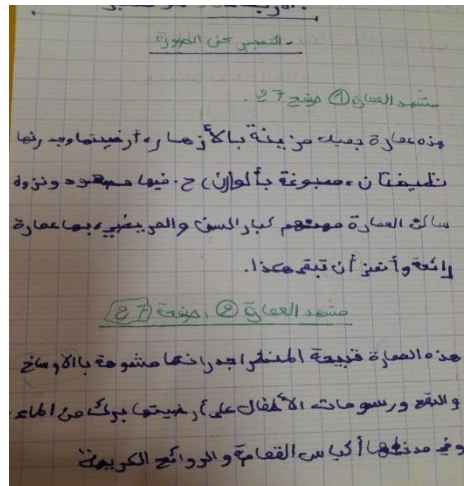 - التعبير عن الصورة
مشهد العمارة ① صفحة 27.
هذه عمارة جميلة مزينة بالأزهار، أرضيتها وجدرانها
نظيفتان، مصبوغة بألوان ح. فيها مصعود ونزول
ساكن العمارة مهتهم كبار السن والمريضي، بها عمارة
رائعة وأتمنى أن تبقى هكذا.
مشهد العمارة ②، صفحة 27
هذه العمارة قبيحة المنظر اجدرانها مشوهة بالاوساخ
والبقع ورسومات الأطفال على أرضيتها برك من الماء
وفي مدخلها أكياس القمامة والروائح الكريهة